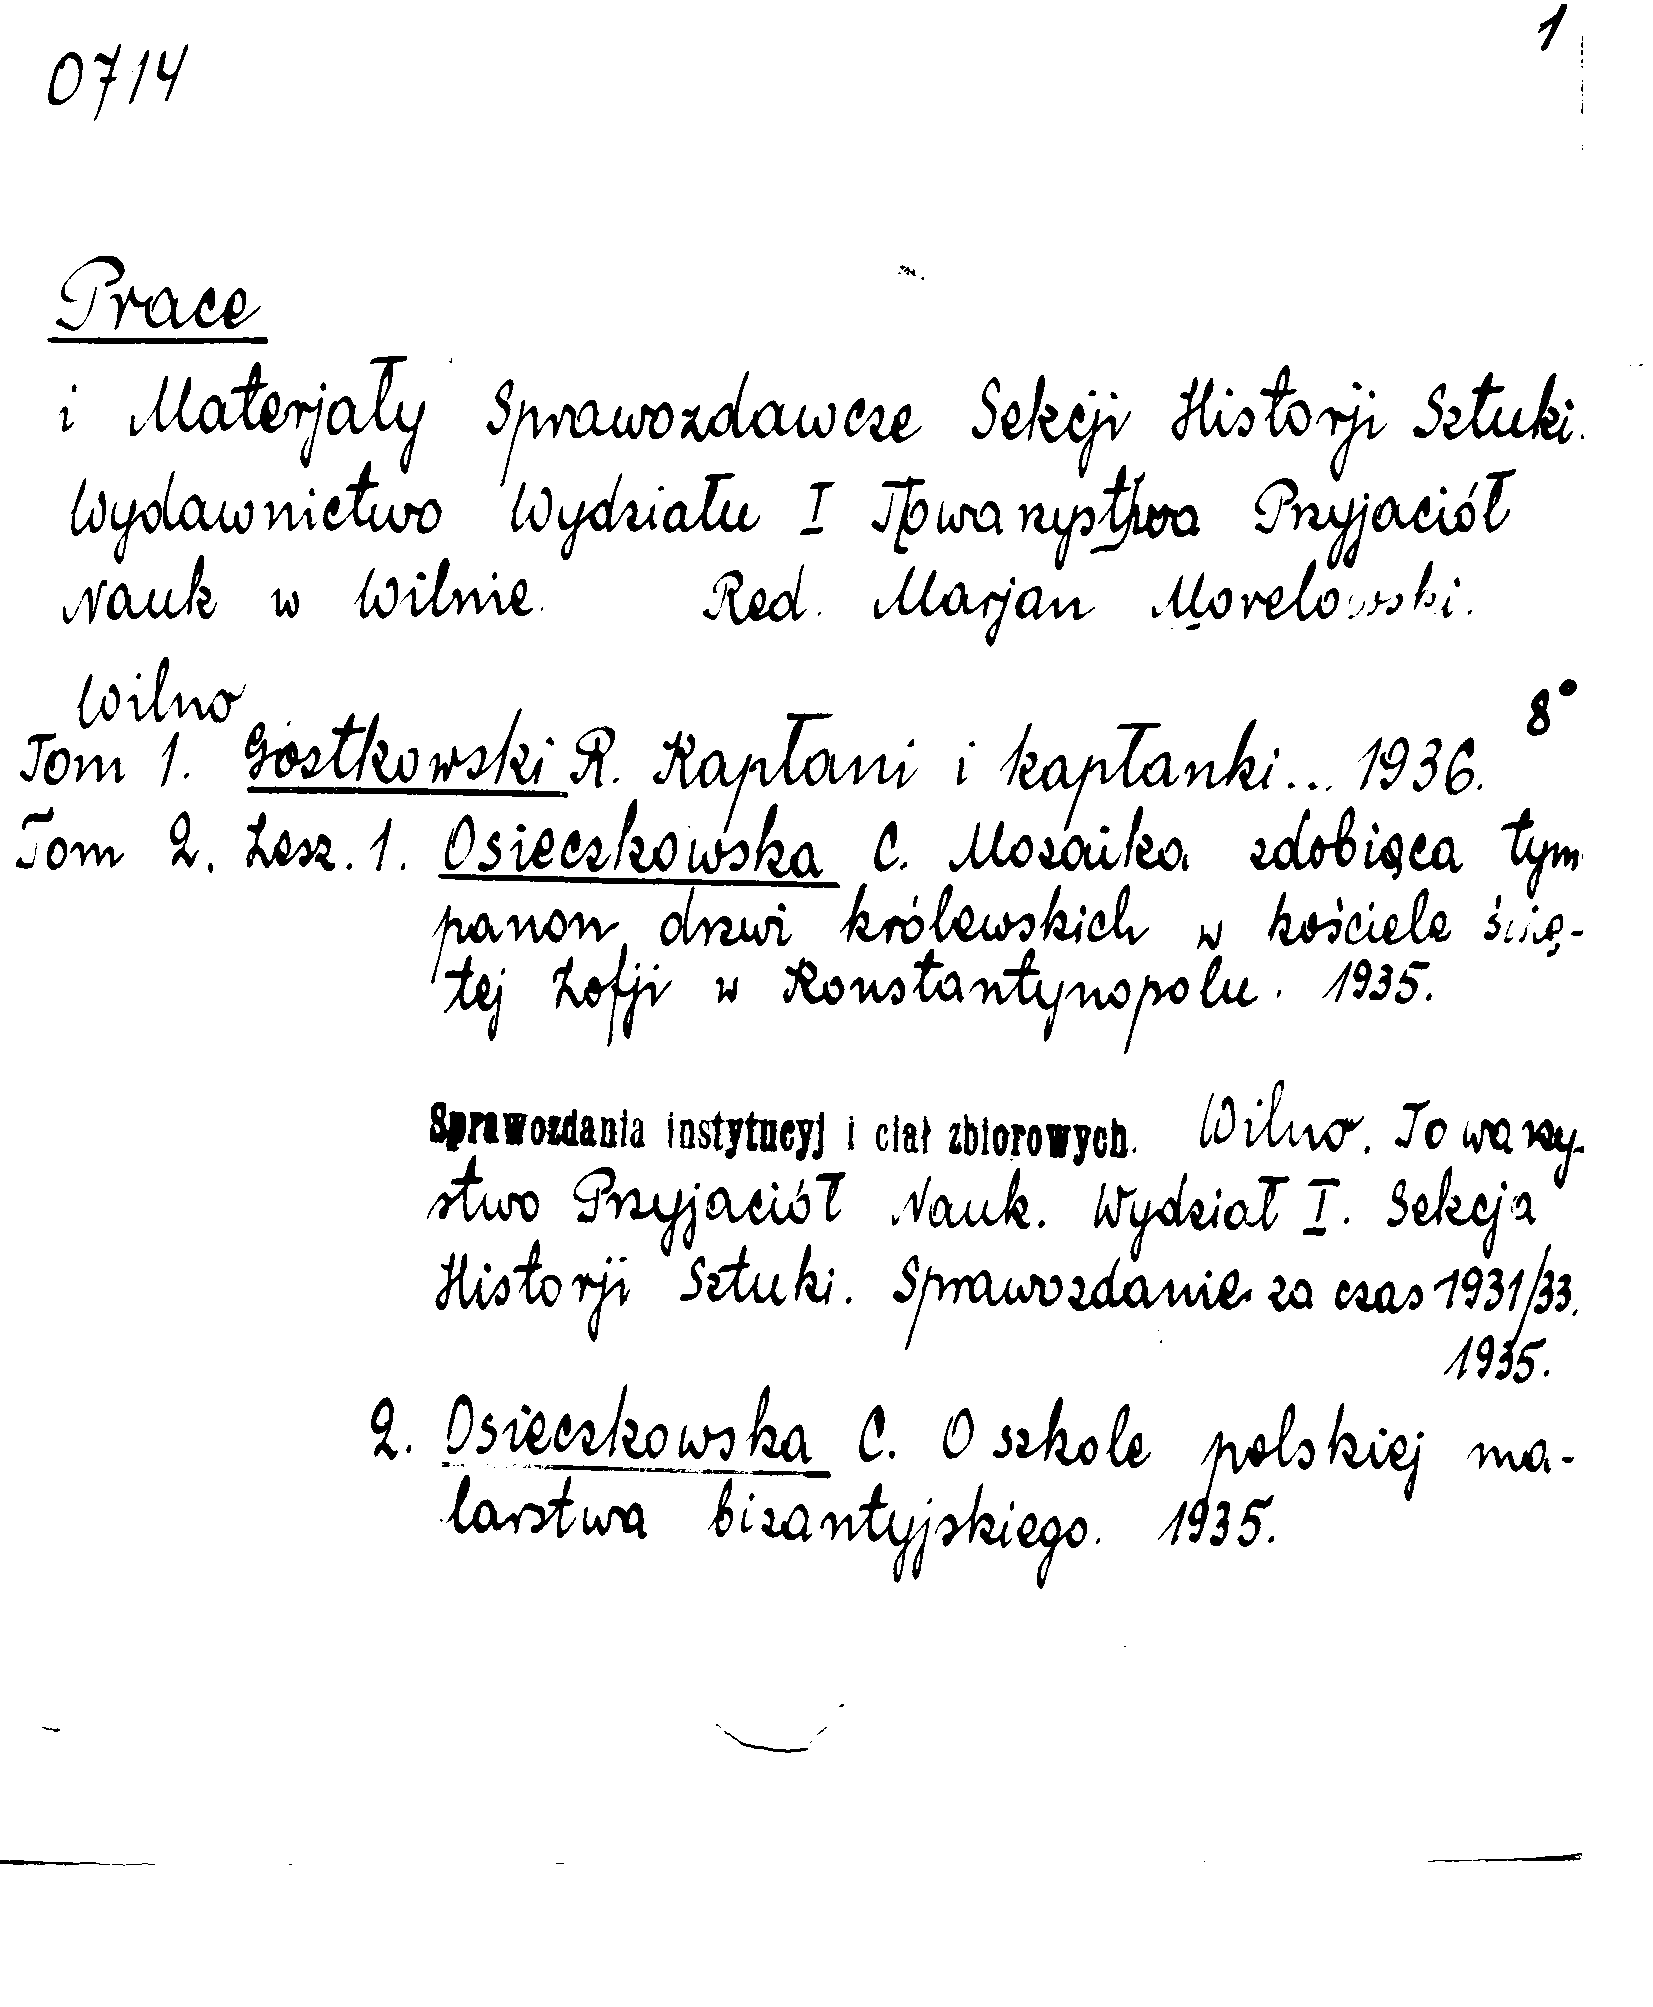 1
0714
Prace
i Materjały Sprawozdawcze Sekcji Historji Sztuki.
Wydawnictwo Wydziału I Towarzystwa Przyjaciół
Nauk w Wilnie. Red. Marjan Morelowski.
Wilno
8°
Tom 1. Gostkowski R. Kapłani i kapłanki... 1936.
Tom 2. Zesz. 1. Osieczkowska C. Mozaika zdobiąca tym
panon drzwi królewskich w kościele świę-
tej Zofji w Konstantynopolu. 1935.
Sprawozdania instytucyj i ciał zbiorowych. Wilno. Towarzy-
stwo Przyjaciół Nauk. Wydział I. Sekcja
Historji Sztuki. Sprawozdanie za czas 1931/33.
1935.
2. Osieczkowska C. O szkole polskiej ma-
larstwa bizantyjskiego. 1935.